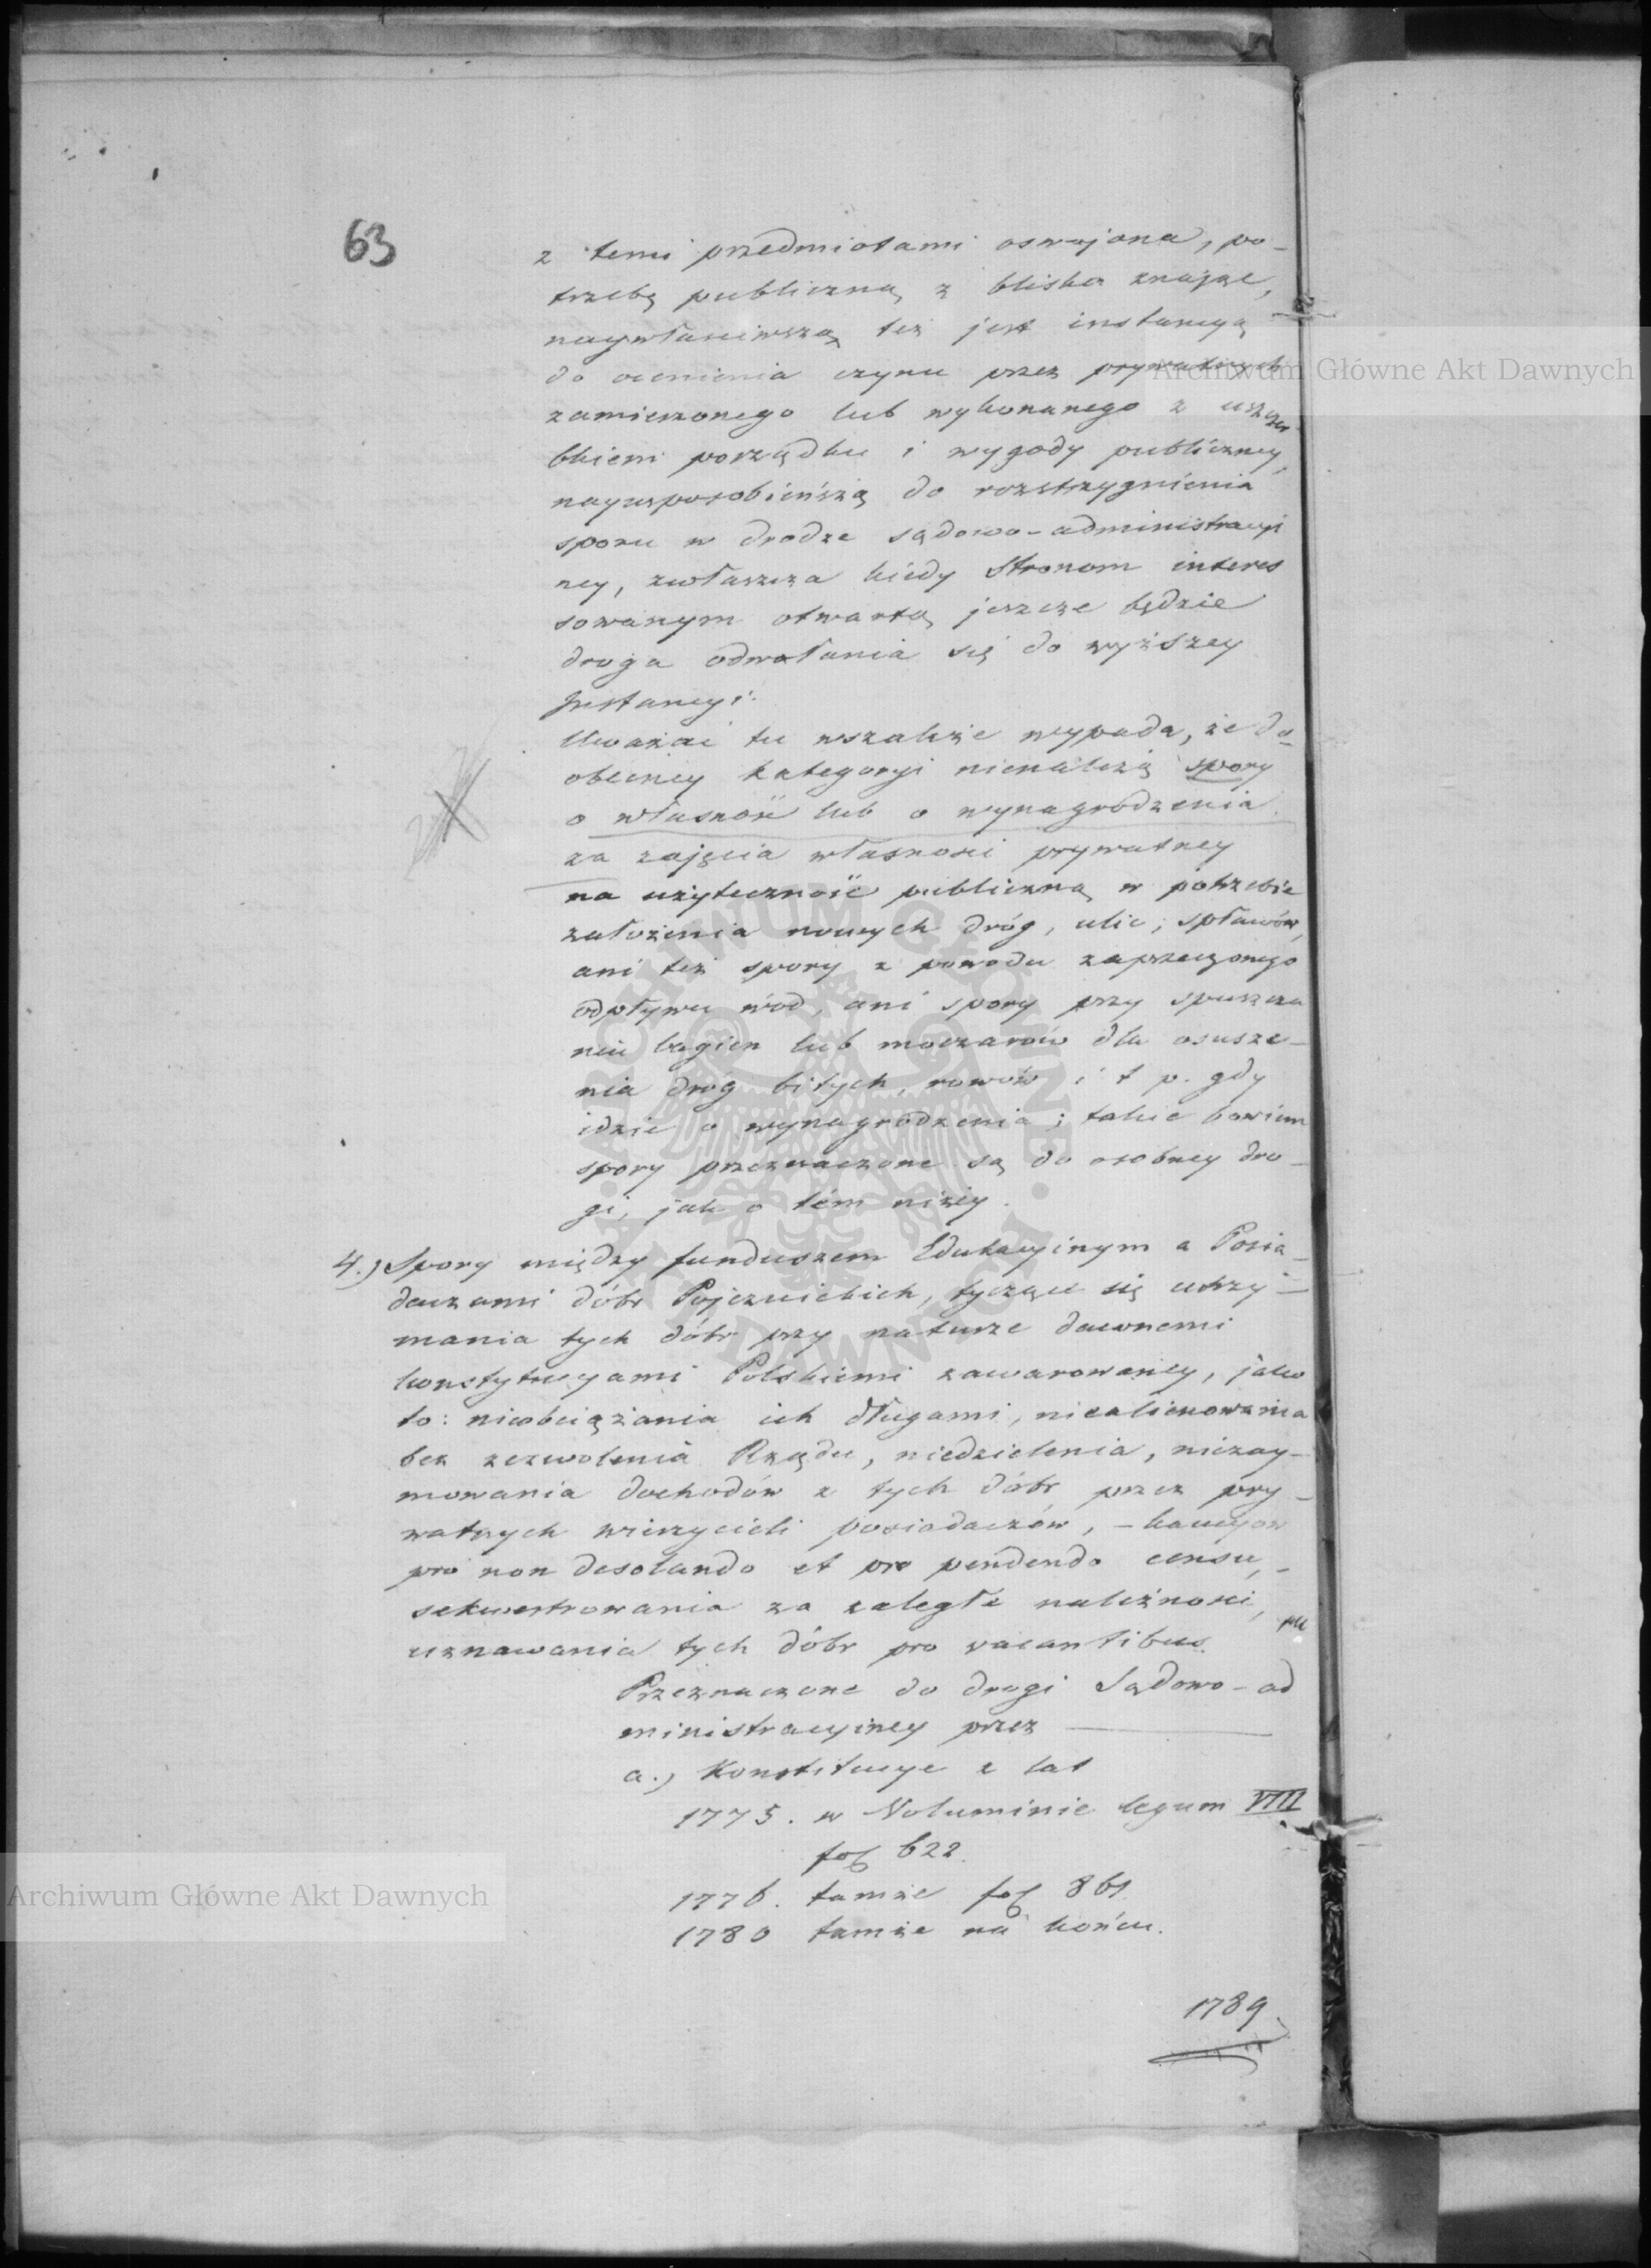 63
z temi przedmiotami oswojona, po-
trzebę publiczną z bliska znając,
naywłasciwszą też jest instancyą
do ocenienia czynu przez prywatnych
zamierzonego lub wykonanego z uszczer
bkiem porządku i wygody publiczney,
nayusposobieńszą do rozstrzygnienia
sporu w drodze sądowo-administracyi
ney, zwłaszcza kiedy Stronom interes
sowanym otwartą jeszcze będzie
droga odwołania się do wyższey
Jnstancyi.
Uważać tu wszakże wypada, że do
obecney kategoryi nienależą spory
o własność lub o wynagrodzenia
za zajęcia własnosci prywatney
na użyteczność publiczną w potrzebie
założenia nowych dróg, ulic, spławów,
ani też spory z powodu zaprzeczonego
odpływu wód, ani spory przy spuszcza
niu bagien lub moczarów dla osusze-
nia dróg bitych, rowów i t p. gdy
idzie o wynagrodzenia; takie bowiem
spory przeznaczone są do osobney dro-
gi, jak o tém niżéy.
4.) Spory między funduszem Edukacyinym a Posia-
daczami dóbr Pojezuickich, tyczące się utrzy-
mania tych dóbr przy naturze dawnemi
konstytucyami Polskiemi zawarowaney, jako
to: nieobciążania ich długami, niealienowania
bez zezwolenia Rządu, niedzielenia, niezay-
mowania dochodów z tych dóbr przez pry-
watnych wierzycieli posiadaczów, - kaucyow
pro non desolando et pro pendendo censu, -
sekwestrowania za zaległe należnosci,
uznawania tych dóbr pro vacantibus.
Przeznaczone do drogi Sądowo-ad
ministracyiney przez
a.) Konstitucye z lat
1775. w Voluminie legum VIII
fol 622.
1776. tamże fol 861.
1780 tamże na końcu.
1789.
Archiwum Główne Akt Dawnych
Archiwum Główne Akt Dawnych
ARCHIWUM GŁÓWNE AKT DAWNYCH